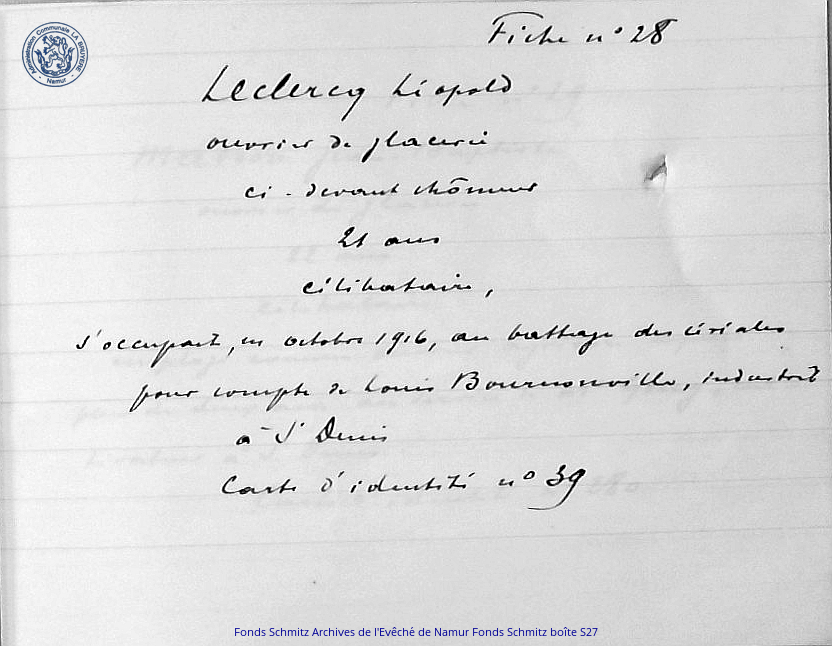 Administration Communale LA BRUYERE
- Namur -
Fiche n° 28
Leclercq Léopold
ouvrier de glacerie
ci-devant chômeur
21 ans
célibataire,
s'occupait, en octobre 1916, au battage des céréales
pour compte de Louis Bournonville, industriel
à St Denis
Carte d'identité n° 39
Fonds Schmitz Archives de l'Evêché de Namur Fonds Schmitz boîte S27